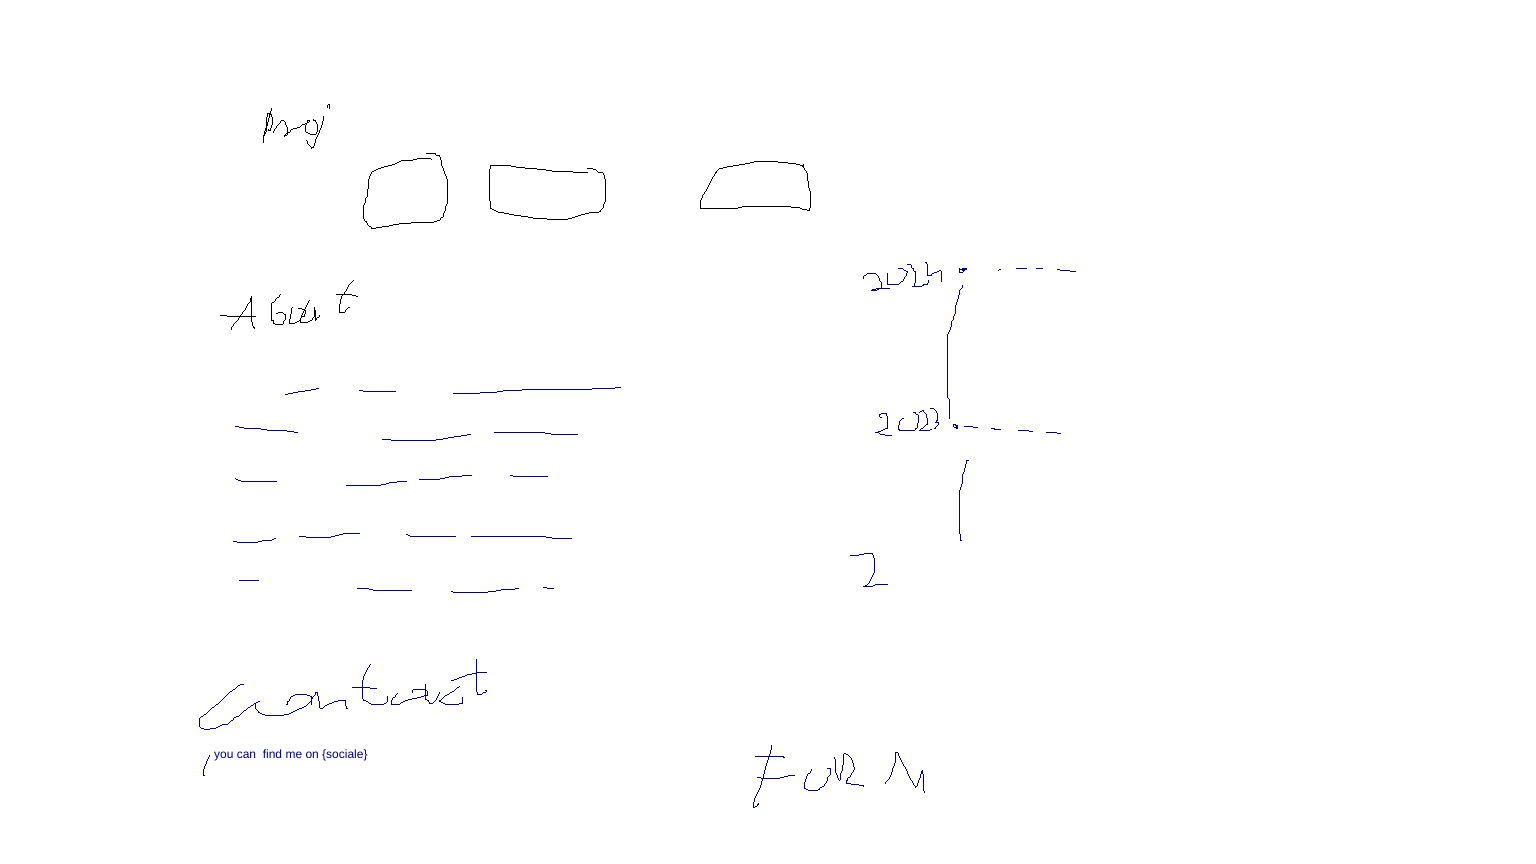 Proj
About
2024
2023
2
Contact
you can  find me on {sociale}
FORM